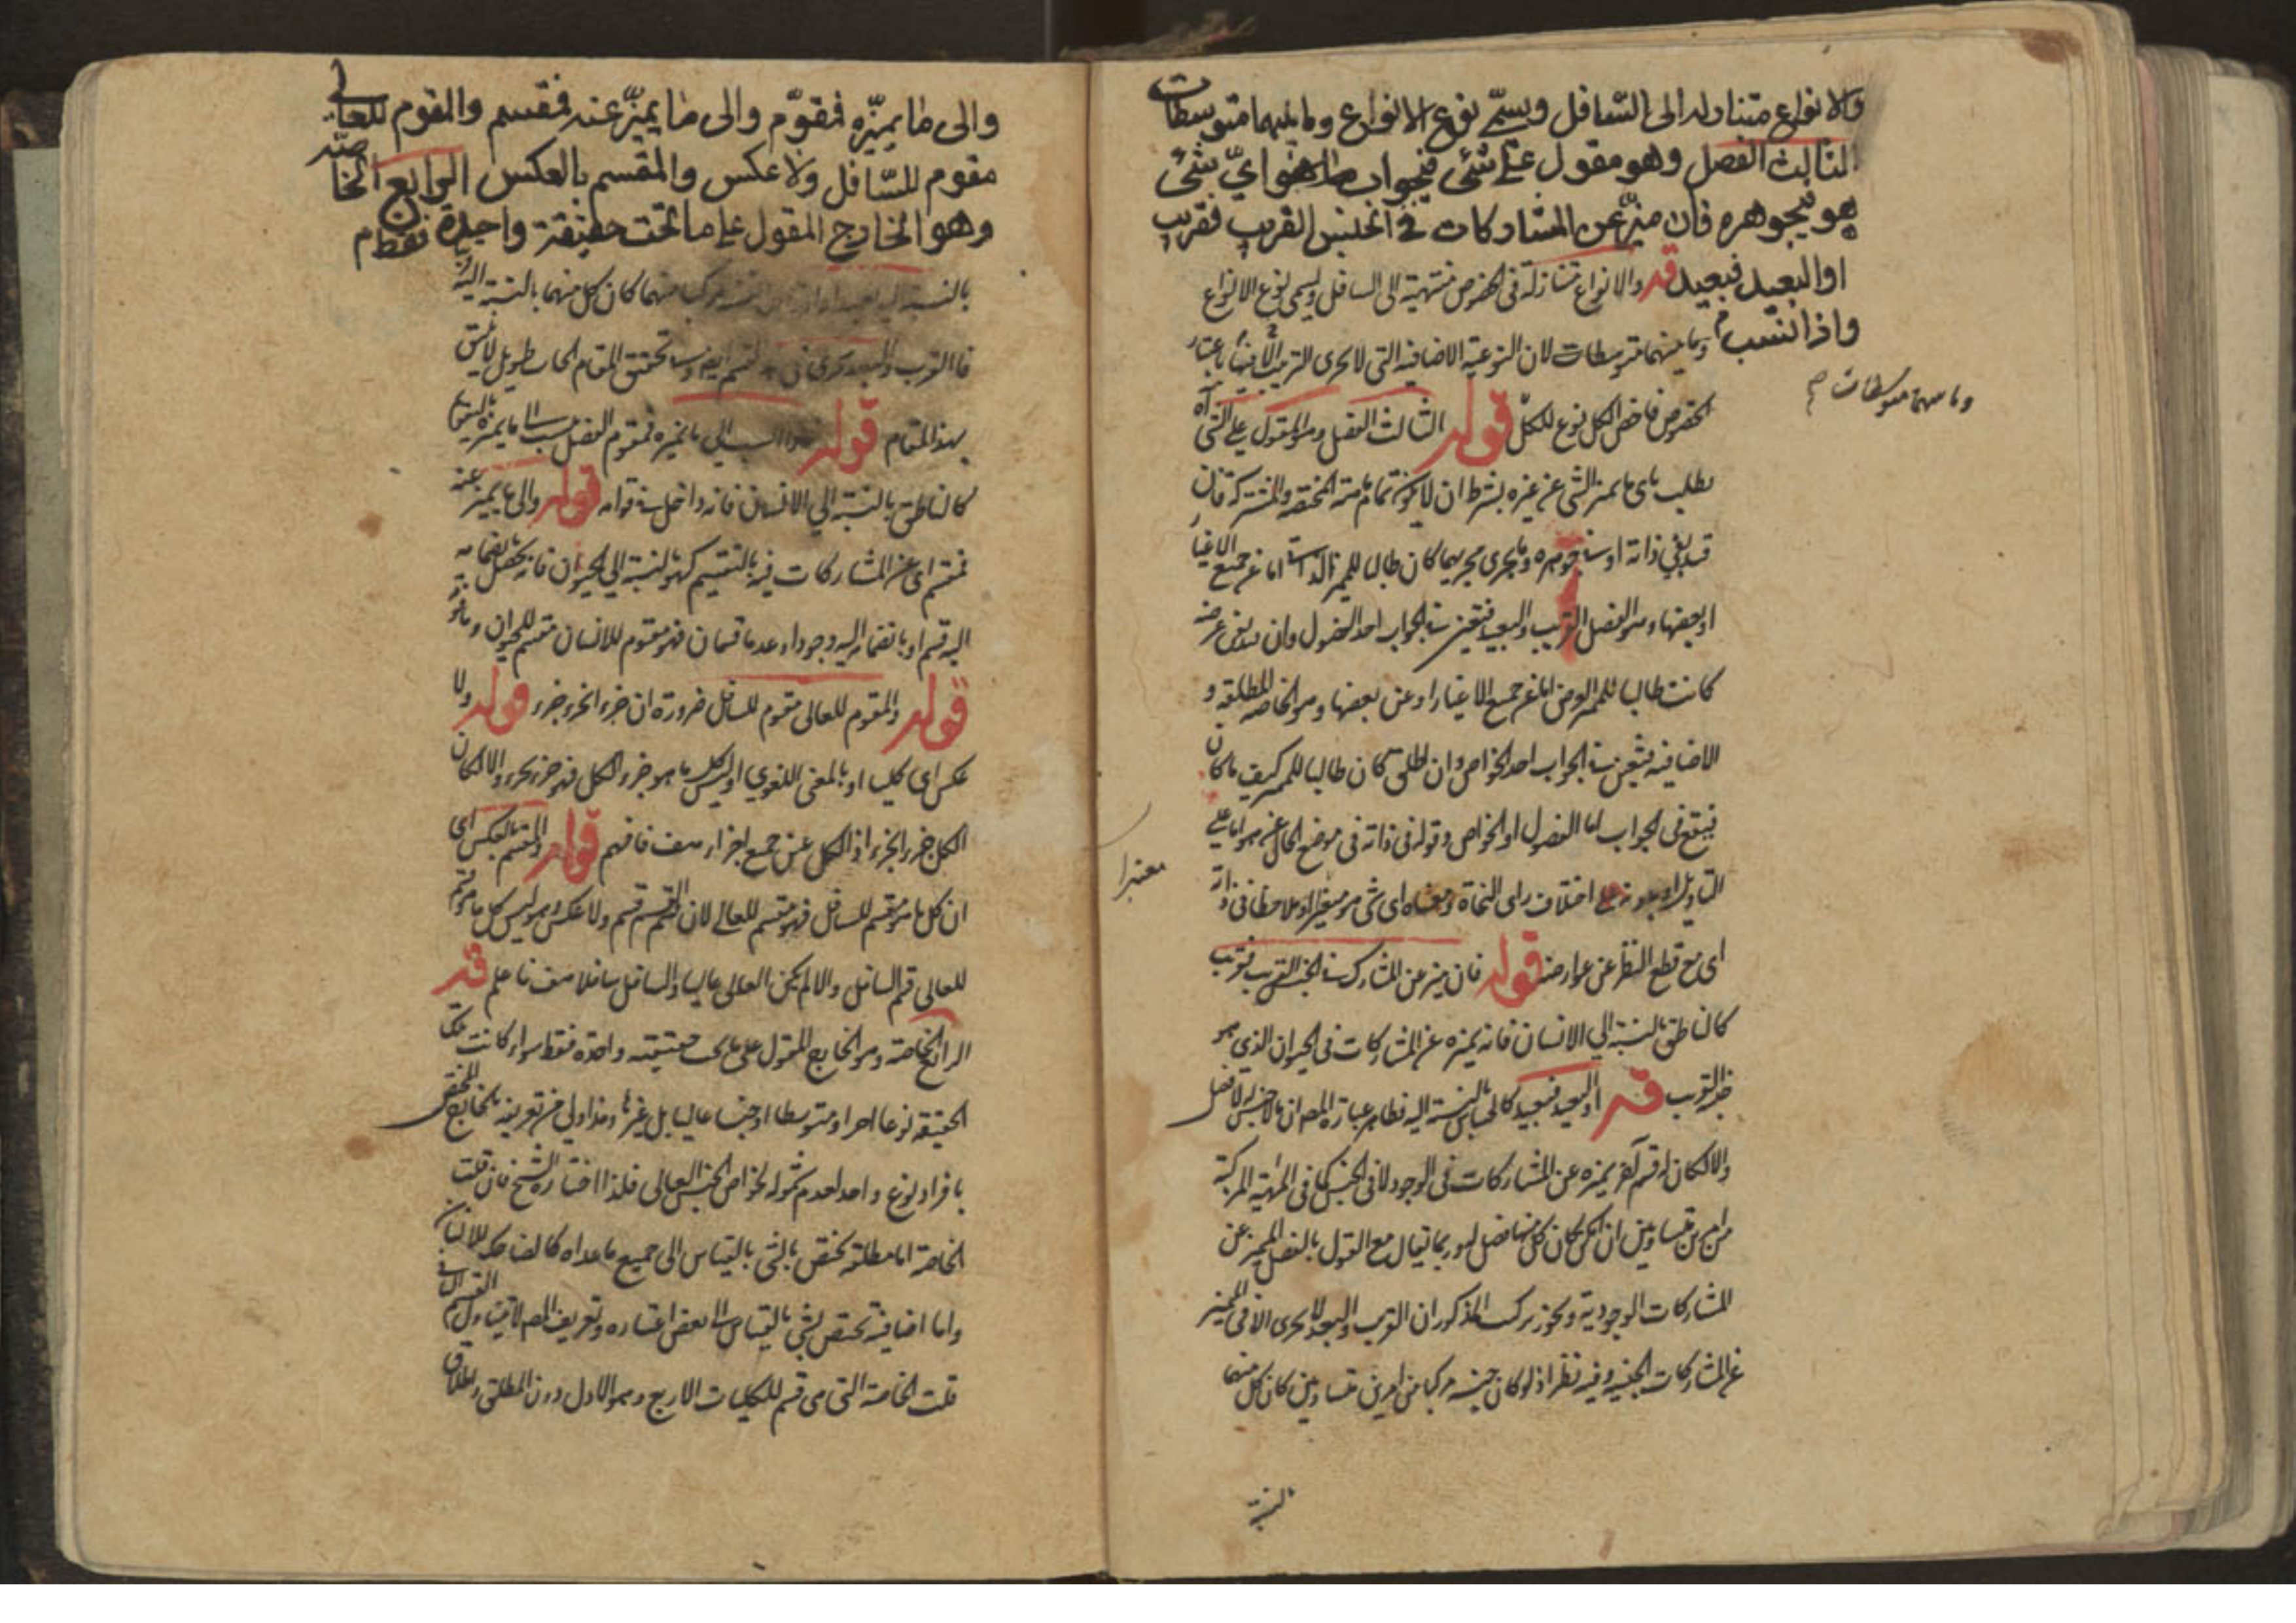 والانواع متنازلة الى السّافل ويسمّى نوع الانواع وما بينهما متوسطات
الثالث الفصل وهو مقول على شئ في جواب اىّ شئ
هو في جوهره فان ميّز عن المشاركات في الجنس القريب فقريب
او البعيد فبعيد قوله والانواع متنازلة فى الخصوص منتهية الى السافل ويسمى نوع الانواع
واذا نسب
وما بينهما متوسطات لان النوعية الاضافية التى لا يجرى الترتيب الا فيها باعتبار
وما بينهما متوسطات صح
الخصوص فاخص الكل نوع للكل قوله الثالث الفصل وهو المقول على الشئ آه
يطلب باى ما يميز الشئ عن غيره بشرط ان لا يكون تمام مهيته المختصة والمشتركة فان
قيد بفي ذاته او في جوهره وما يجرى مجريهما كان طالبا للمميز الذاتى اما عن جميع الاغيار
او بعضها وهو الفصل القريب والبعيد فيتعين في الجواب احد الفصول وان قيد بفي عرضه
كانت طالبا للمميز العرضى اما عن جميع الاغيار او عن بعضها وهو الخاصة المطلقة و
الاضافية فيتعين في الجواب احد الخواص وان اطلق كان طالبا للمميز كيف ما كان
فيقع فى الجواب اما الفصول او الخواص وقوله فى ذاته فى موضع الحال عن هو اما على
معتبرا
التاويل او بدونه على اختلاف راى النحاة ومعناه اى شئ هو معتبرا وملاحظا فى ذاته
اى مع قطع النظر عن عوارضه قوله فان ميز عن المشارك في الجنس القريب فقريب
كالناطق بالنسبة الي الانسان فانه يميزه عن المشاركات فى الحيوان الذي هو
جنسه القريب قوله او البعيد فبعيد كالحساس بالنسبة اليه فظاهر عبارة المص ان ما لا جنس له لا فصل له
والا لكان له قسم آخر يميزه عن المشاركات فى الوجود لا فى الجنس كما فى المهية المركبة
من امرين متساويين ان امكن كان كل منهما فصل لها وربما يقال مع القول بالفصل المميز عن
المشاركات الوجودية وتجويز تركب المذكور ان القرب والبعد لا يجرى الا فى المميز
عن المشاركات الجنسية وفيه نظر اذ لو كان جنسه مركبا من امرين متساويين كان كل منهما
بالنسبة
والى ما يميّزه فمقوّم والى ما يميّز عنه فمقسم والمقوم للعالى
مقوم للسّافل ولا عكس والمقسم بالعكس الرابع الخاصّة
وهو الخارج المقول على ما تحت حقيقة واحدة فقط
بالنسبة اليه بعيدا منهما كان كل منهما بالنسبة اليه
فالقرب والبعد تحقيق المقام الحاب طويل لا يليق
بهذا المقام قوله واذا نسب الي ما يميزه فمقوم الفصل نسب الى ما يميزه بالتقويم
كالناطق بالنسبة الي الانسان فانه داخل في قوامه قوله والى ما يميز عنه
فمقسم اى عن المشاركات فيه بالتقسيم كهو بالنسبة الي الحيوان فانه يحصل بانضمامه
اليه قسم او بانضمام اليه وجودا وعدما قسمان فهو مقوم للانسان مقسم للحيوان
قوله والمقوم للعالى مقوم للسافل ضرورة ان جزء الجزء جزء قوله ولا
عكس اى كليا او بالمعنى اللغوي اذ ليس كل ما هو جزء الكل فهو جزء لجزء والا لكان
الكل جزء الجزء اذ الكل عين جميع اجزاء هف فافهم قوله والمقسم بالعكس اى
ان كل ما هو مقسم للسافل فهو مقسم للعالى لان قسم القسم قسم ولا عكس وهو ليس كل ما هو قسم
للعالى قسم السافل والا لم يكن العالى عاليا والسافل سافلا هف فاعلم قوله
الرابع الخاصة وهو الخارج المقول على ما تحت حقيقة واحدة فقط سواء كانت تلك
الحقيقة نوعا اخيرا او متوسطا او جنسا عاليا بل غيرها وهذا اولي من تعريفه بالخارج المختص
بافراد نوع واحد لعدم شموله لخواص الجنس العالى فلذا اختاره الشيخ فان قلت
الخاصة اما مطلقة تختص بالشئ بالقياس الى جميع ما عداه كالضاحك للانسان
واما اضافية تختص بشئ بالقياس الى بعض اغياره وتعريف المص لا يتناول القسم الثانى
قلت الخاصة التى هى قسم للكليات الاربع وهو الاول دون المطلق واطلاق